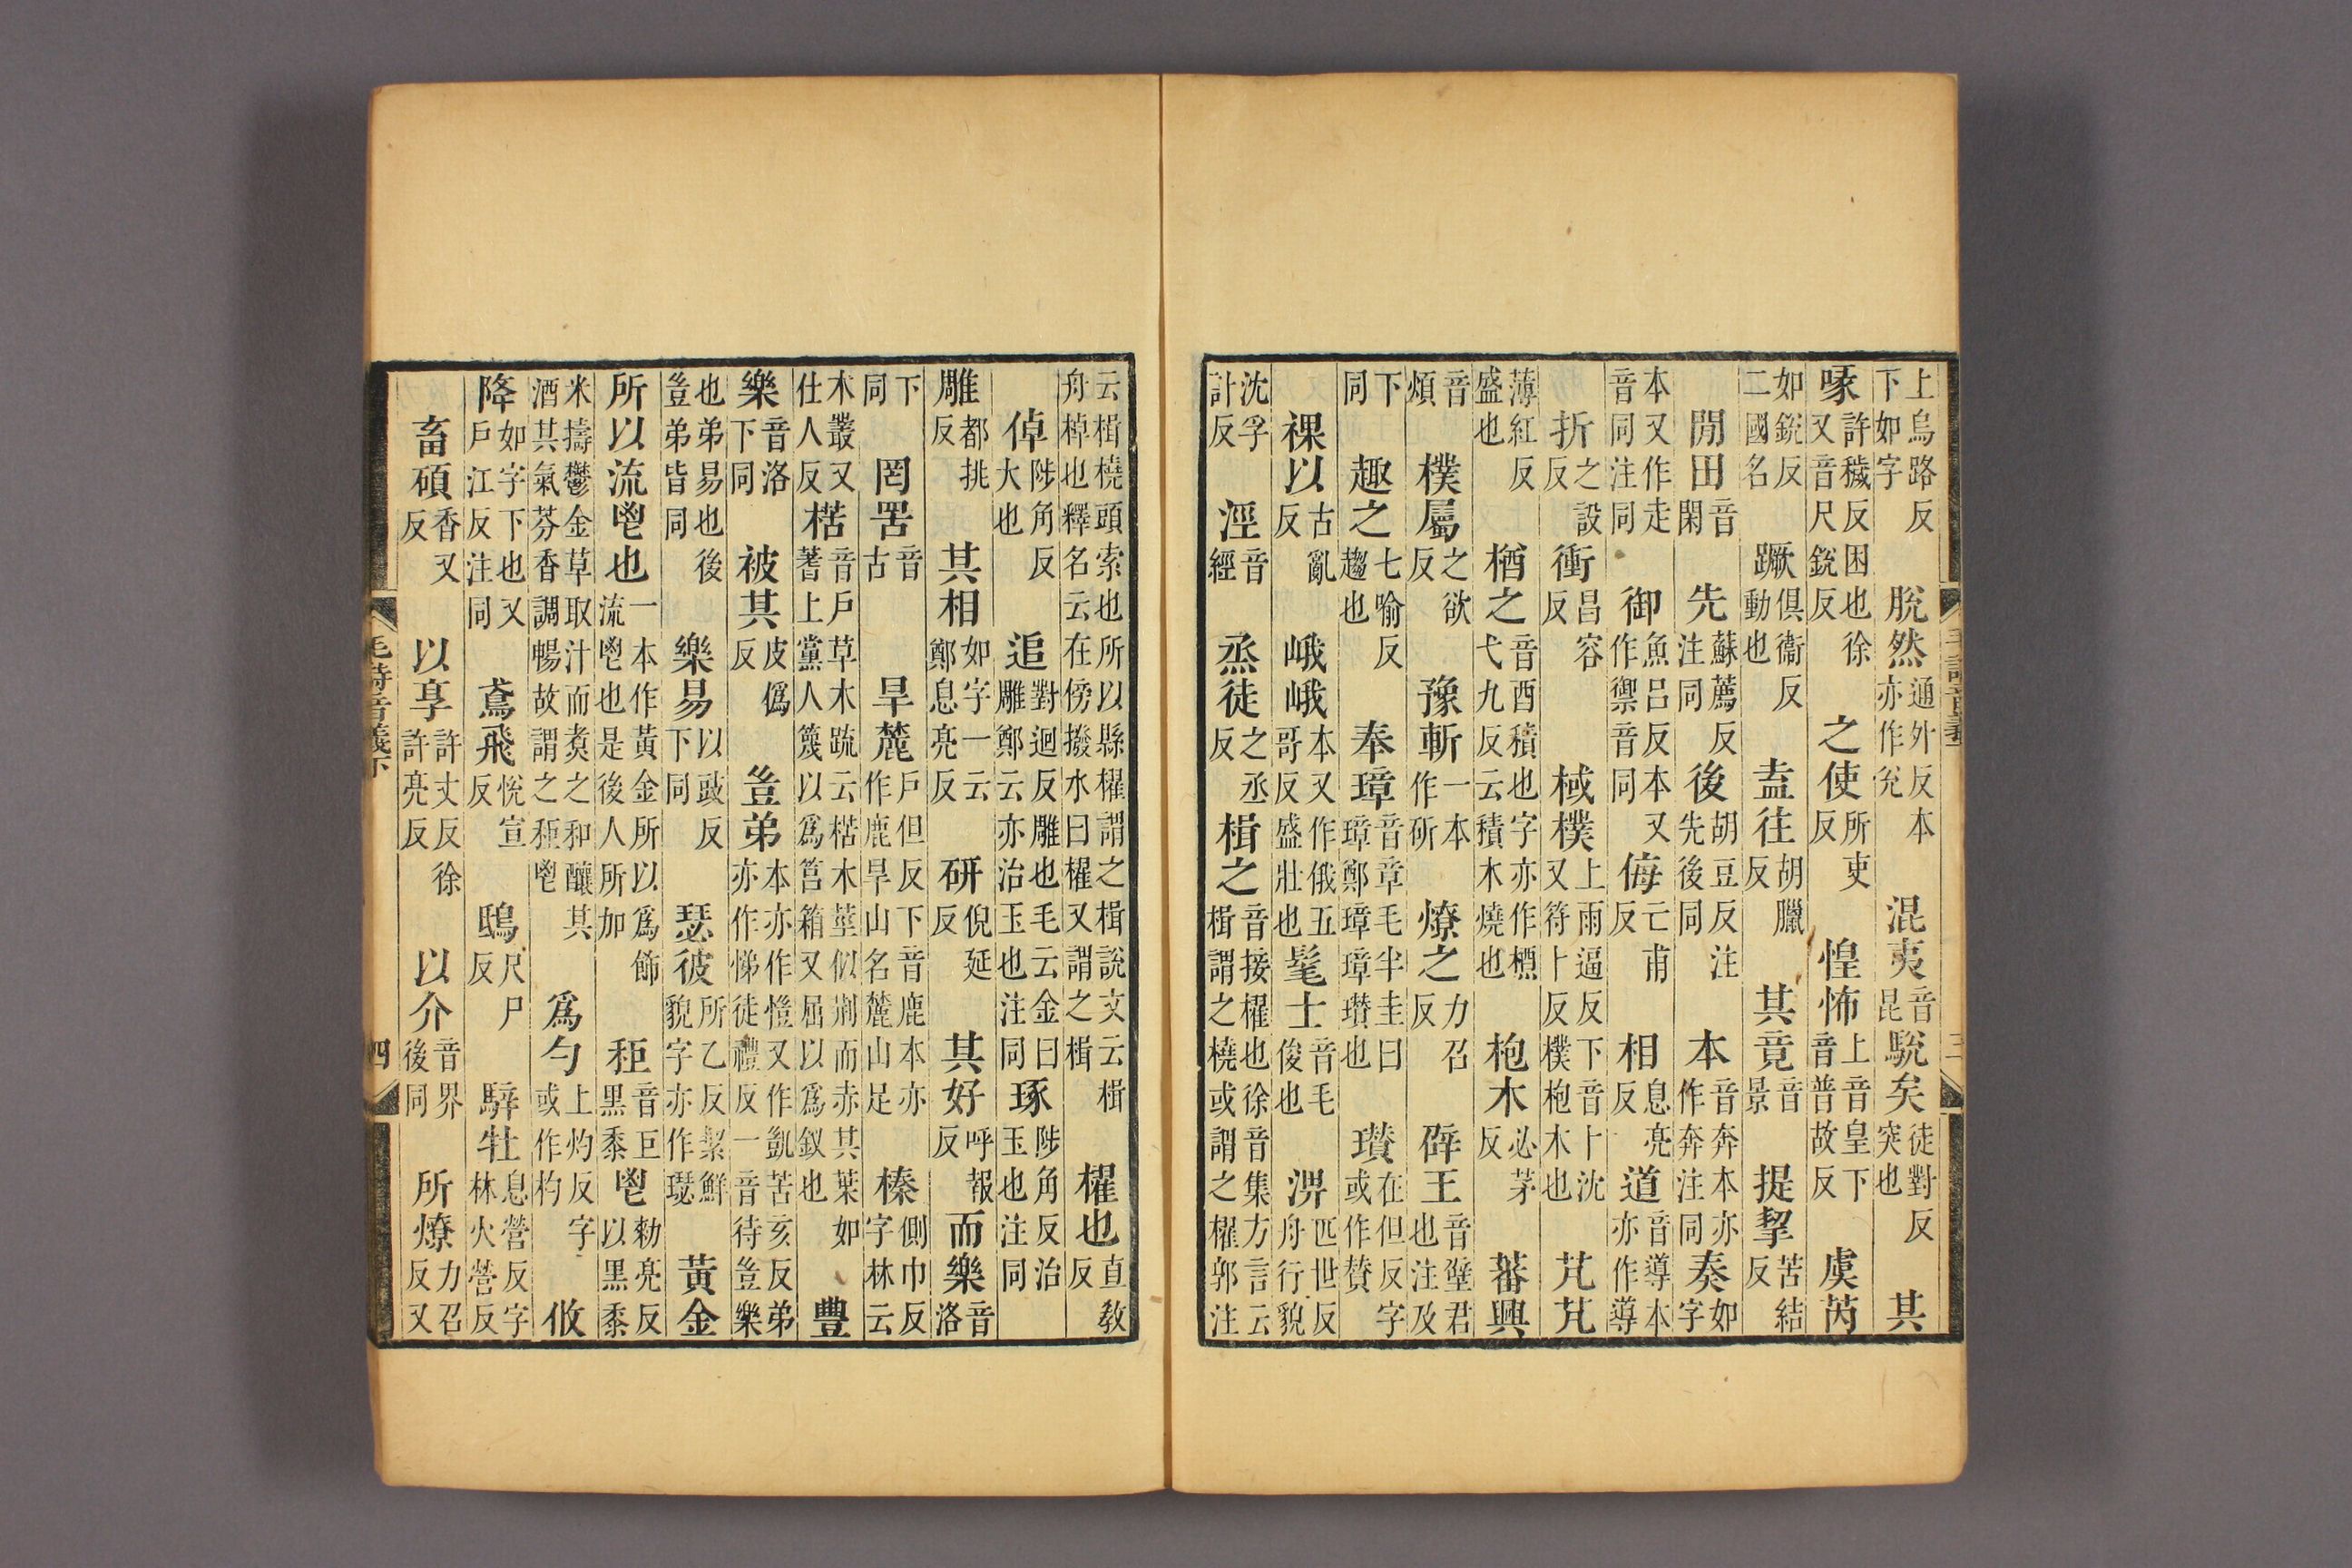 上烏路反下如字脫然通外反本亦作兊混夷音昆駾矣徒對反突也其
喙許穢反困也徐又音尺銳反之使所吏反惶怖上音皇下音普故反虞芮
如銳反二國名蹶俱衞反動也盍往胡臘反其竟音景提挈苦結反
閒田音閑先蘇薦反注同後胡豆反注先後同本音奔本亦作奔注同奏如字
本又作走音同注同御魚呂反本又作禦音同侮亡甫反相息亮反道音導本亦作導
折之設反衝昌容反棫樸上雨逼反下音卜沈又符卜反樸枹木也芃芃
薄紅反盛也楢之音酉積也字亦作槱弋九反云積木燒也枹木必茅反蕃興
音煩樸屬之欲反豫斬一本作斫燎之力召反辟王音壁君也注及
下同趣之七喻反趨也奉璋音章毛半圭曰璋鄭璋璋瓚也瓚在但反字或作賛
祼以古亂反峨峨本又作俄五哥反盛壯也髦士音毛俊也淠匹世反舟行貌
沈孚計反涇音經烝徒之丞反楫之音接櫂也徐音集方言云楫謂之橈或謂之櫂郭注
云楫橈頭索也所以縣櫂謂之楫說文云楫舟棹也釋名云在傍撥水曰櫂又謂之楫櫂也直教反
倬陟角反大也追對迴反雕也毛云金曰雕鄭云亦治玉也注同琢陟角反治玉也注同
雕都挑反其相如字一云鄭息亮反研倪延反其好呼報反而樂音洛
下同罔罟音古旱麓戶但反下音鹿本亦作鹿旱山名麓山足榛側巾反字林云
木叢又仕人反楛音戶草木疏云楛木莖似荊而赤其葉如蓍上黨人篾以爲筥箱又屈以爲釵也豐
樂音洛下同被其皮僞反豈弟本亦作愷又作凱苦亥反弟亦作悌徒禮反一音待豈樂
也弟易也後豈弟皆同樂易以豉反下同瑟彼所乙反絜鮮貌字亦作璱黃金
所以流鬯也一本作黃金所以爲飾流鬯也是後人所加秬音巨黑黍鬯勅亮反以黑黍
米擣鬱金草取汁而煑之和釀其酒其氣芬香調暢故謂之秬鬯爲勺上灼反字或作杓攸
降如字下也又戶江反注同鳶飛悅宣反鴟尺尸反騂牡息營反字林火營反
畜碩香又反以享許丈反徐許亮反以介音界後同所燎力召反又
毛詩音義下 四